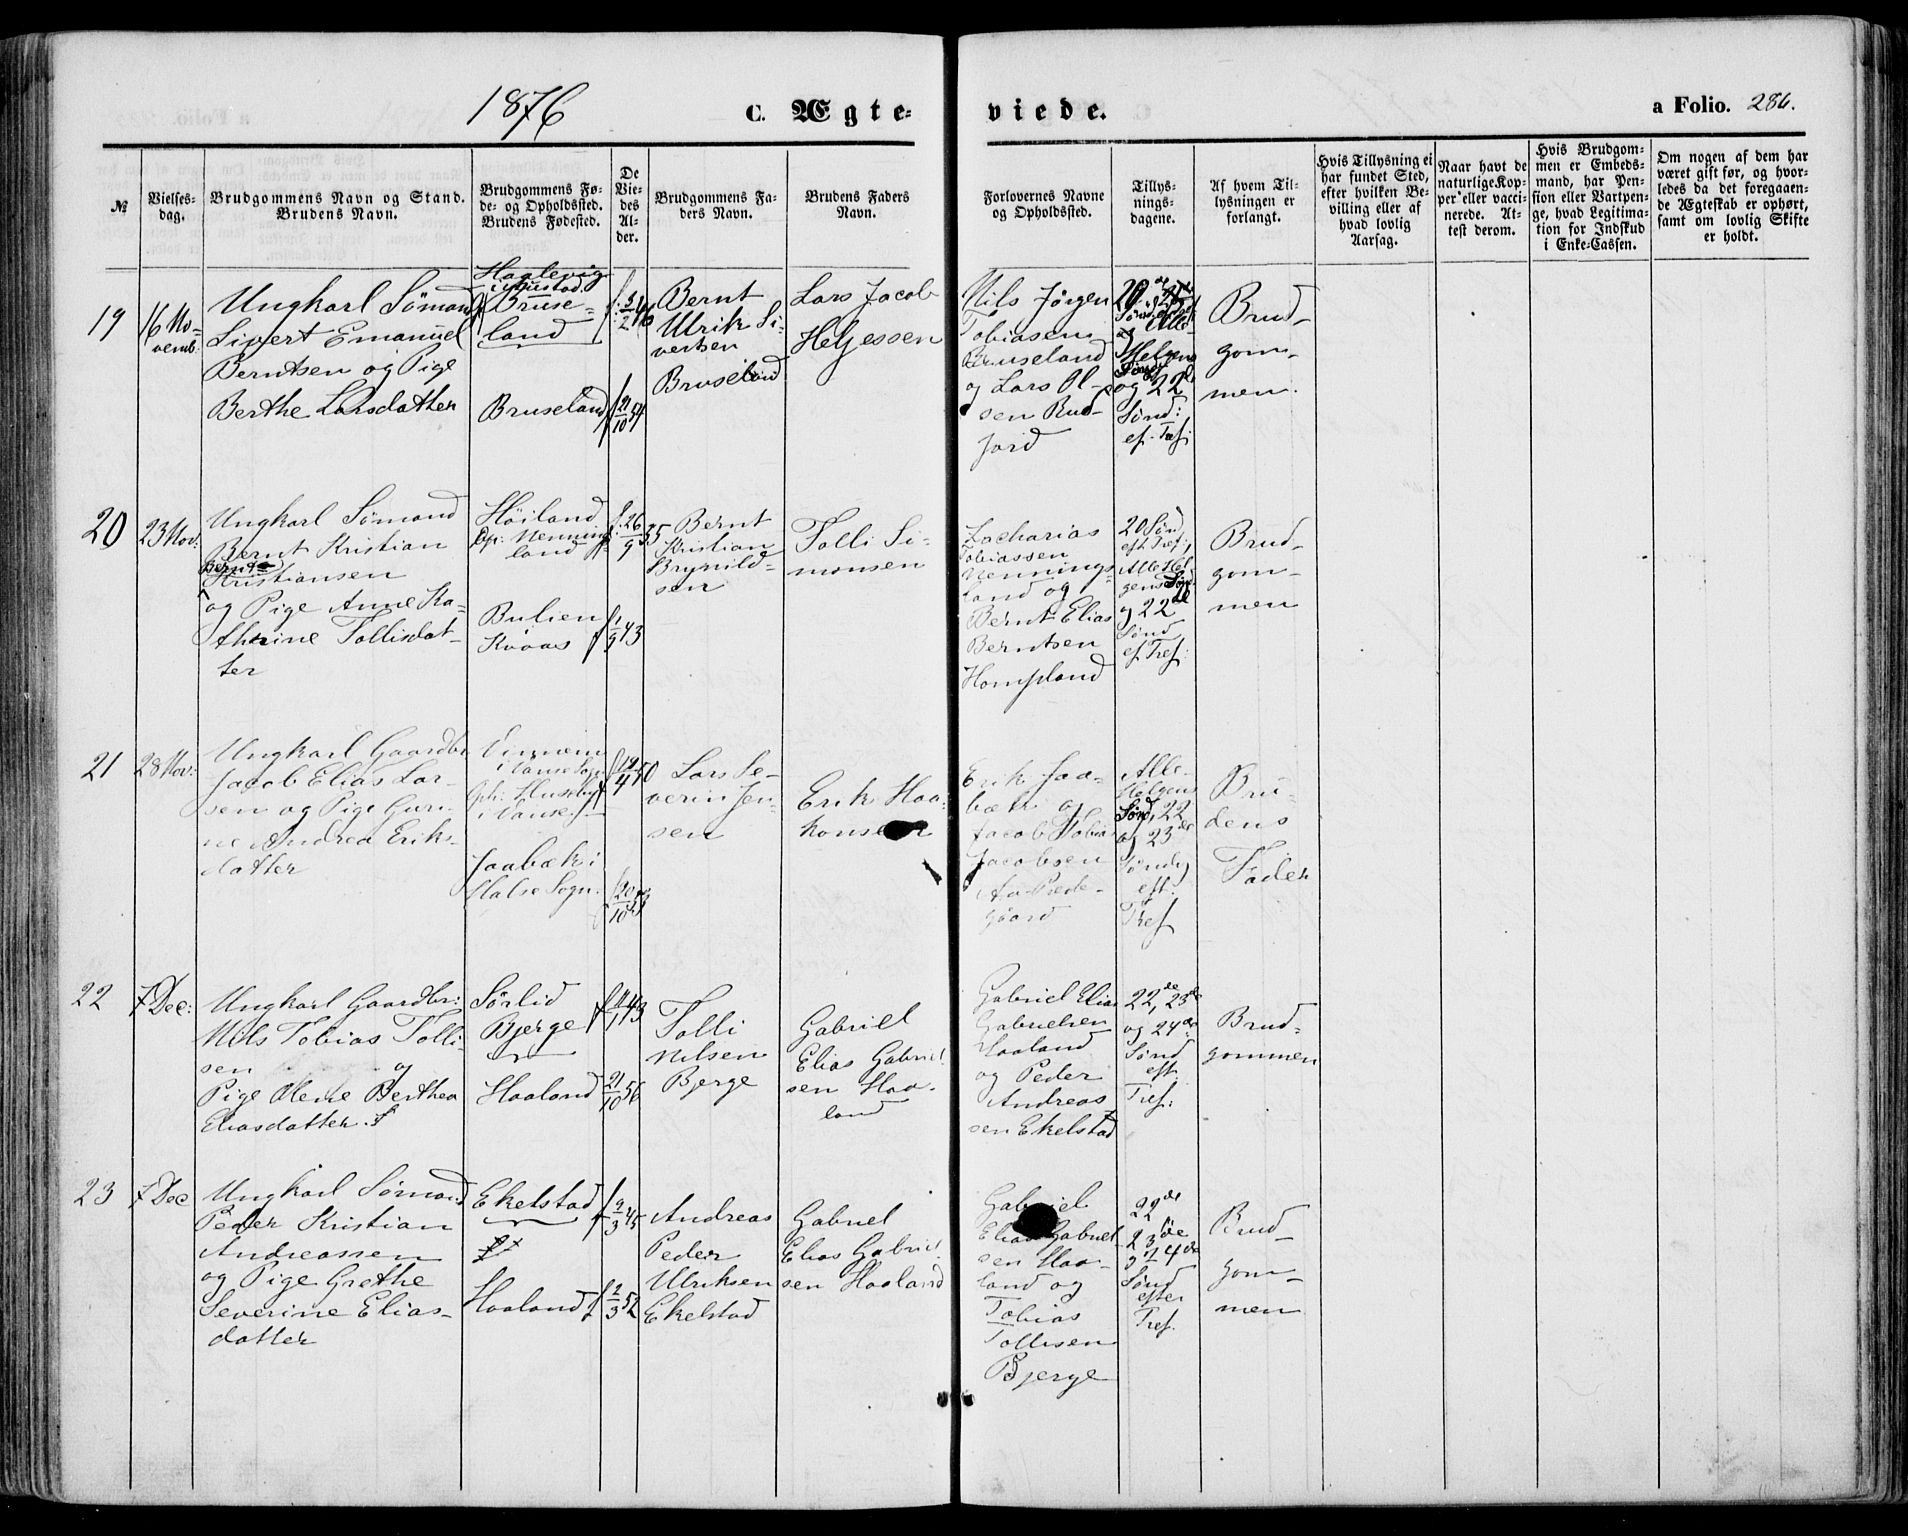 1876
C. Ægteviede.
a Folio. 286.
№
Vielsesdag.
Brudgommens Navn og Stand.
Brudens Navn.
Brudgommens Føde- og Opholdssted.
Brudens Fødested.
De Viedes Alder.
Brudgommens Faders Navn.
Brudens Faders Navn.
Forlovernes Navne og Opholdssted.
Tillysningsdagene.
Af hvem Tillysningen er forlangt.
Hvis Tillysning ei har fundet Sted, efter hvilken Bevilling eller af hvad lovlig Aarsag.
Naar havt de naturlige Kopper eller vaccinerede. Attest derom.
Hvis Brudgommen er Embedsmand, har Pension eller Vartpenge, hvad Legitimation for Indskud i Enke-Cassen.
Om nogen af dem har været gift før, og hvorledes da det foregaaende Ægteskab er ophørt, samt om lovlig Skifte er holdt.
19
16 No-
vemb:
Ungkarl Sömand
Sivert Emanuel
Berntsen og Pige
Berthe Larsdatter
Bruse-
land
Bruseland
5/2 46
21/10 54
Bernt
Ulrik Si-
vertsen
Bruseland
Lars Jacob
Heljessen
Nils Jørgen
Tobiasen
Bruseland
og Lars Ol-
sen Rud-
jord
og Alle
Helgens
Sönd
og 22de
Sönd:
ef. Tref:
Brud-
gom-
men.
20
23 Nov:
Ungkarl Sömand
Bernt Kristian
Bernt
Kristiansen
og Pige Anne Ka-
thrine Tollisdat-
ter
Höiland
Oph: Nenning
land
Bulien
Kvaas
26/9 35
1/9 43
Bernt
Kristian
Brynild-
sen
Tolli Si-
monsen
Zacharias
Tobiassen
Nennings-
land og
Bernt Elias
Berntsen
Hompland
20 Sönd
eft Tref:,
Alle Hel-
gens Sönd
og 22de
Sönd
ef. Tref:
Brud-
gom-
men
21
28 Nov:
Ungkarl Gaardbr
Jacob Elias Lar-
sen og Pige Guri-
ne Andrea Eriks-
datter
i Vanse Sogn
Oph: Huseby
i Vanse
Jaabæk i
Halse Sogn.
12/4 50
20/10 53
Lars Se-
verin Jen-
sen
Erik Haa-
konsen
Erik Jaa-
bæk og
Jacob Tobias
Jacobsen
Præde-
gaard
Alle-
Helgens
Sönd, 22
og 23de
Söndg
eft.
Tref
Bru-
dens
Fader
22
7 Dec:
Ungkarl Gaardbr:
Nils Tobias Tolli-
sen og
Pige Olene Berthea
Eliasdatter.
Sörlid
Bjerge
Haaland
43
21/10 56
Tolli
Nilsen
Bjerge
Gabriel
Elias Gabriel-
sen Haa-
land
Gabriel Elias
Gabrielsen
Haaland
og Peder
Andreas
sen Ekelstad
22de, 23de
og 24de
Sönd
eft
Tref:
Brud-
gommen
23
7 Dec
Ungkarl Sömand
Peder Kristian
Andreassen
og Pige Grethe
Severine Elias-
datter
Ekelstad
Haaland
9/3 45
2/3 52
Andreas
Peder
Ulriksen
Ekelstad
Gabriel
Elias Gabriel-
sen Haaland
Gabriel
Elias Gabriel-
sen Haa-
land og
Tobias
Tollisen
Bjerge
22de
23de
24de
Sönd
efter
Tref.
Brud-
gom-
men